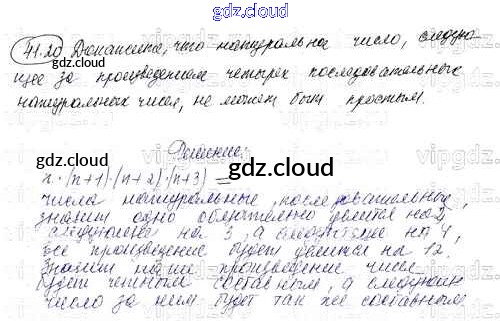 gdz.cloud
41.20 Докажите, что натуральное число, следую-
щее за произведением четырех последовательных
натуральных чисел, не может быть простым.
gdz.cloud
Решение:
n·(n+1)·(n+2)·(n+3) =
gdz.cloud
числа натуральные, последовательные,
значит одно обязательно делится на 2,
следующее на 3, а следующие на 4,
все произведение будет делится на 12.
Значит наше произведение чисел
будет четным составным, а следующее
число за ним будет так же составным
gdz.cloud